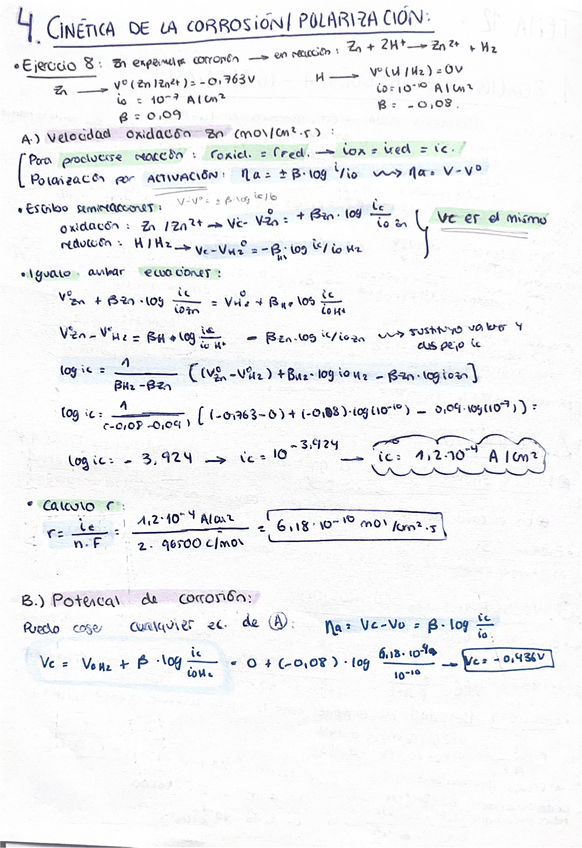 4. CINÉTICA DE LA CORROSIÓN / POLARIZACIÓN:
• Ejercicio 8: Zn experimenta corrosión → en reacción: Zn + 2H⁺ → Zn²⁺ + H₂
Zn → V⁰(Zn/Zn²⁺) = -0,763V    H → V⁰(H/H₂) = 0V
i₀ = 10⁻⁷ A/cm²    i₀ = 10⁻¹⁰ A/cm²
β = 0,09    β = -0,08.
A.) Velocidad oxidación Zn (mol/cm².s):
Para producirse reacción: roxid. = rred. → iox = ired = ic.
Polarización por ACTIVACIÓN: ηa = ± β·log i/i₀ ⟿ ηa = V-V⁰
• Escribo semirreacciones: V-V⁰ = ± β·log ic/i₀
oxidación: Zn/Zn²⁺ → Vc - V⁰Zn = + βZn · log ic/i₀ Zn
reducción: H/H₂ → Vc - VH₂⁰ = -βH · log ic/i₀ H₂
Vc es el mismo
• Igualo ambas ecuaciones:
V⁰Zn + βZn · log ic/i₀Zn = V⁰H₂ + βH · log ic/i₀H⁺
V⁰Zn - V⁰H₂ = βH · log ic/i₀H⁺ - βZn · log ic/i₀Zn ⟿ sustituyo valor y
despejo ic
log ic = 1/(βH₂ - βZn) [(V⁰Zn - V⁰H₂) + βH₂ · log i₀H₂ - βZn · log i₀Zn]
log ic = 1/(-0,08 - 0,09) [(-0,763-0) + (-0,08) · log(10⁻¹⁰) - 0,09 · log(10⁻⁷)] =
log ic = -3,924 → ic = 10^-3,924 → ic = 1,2·10⁻⁴ A/cm²
• Calculo r:
r = ic/n·F = 1,2·10⁻⁴ A/cm² / 2·96500 C/mol = 6,18·10⁻¹⁰ mol/cm².s
B.) Potencial de corrosión:
Puedo coger cualquier ec. de A: ηa = Vc-V₀ = β · log ic/i₀
Vc = V₀H₂ + β · log ic/i₀H₂ = 0 + (-0,08) · log /10⁻¹⁰ → Vc = -0,436V